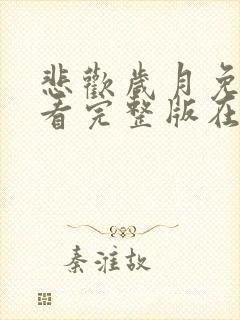 悲歡歲月免
看完整版在
秦淮故